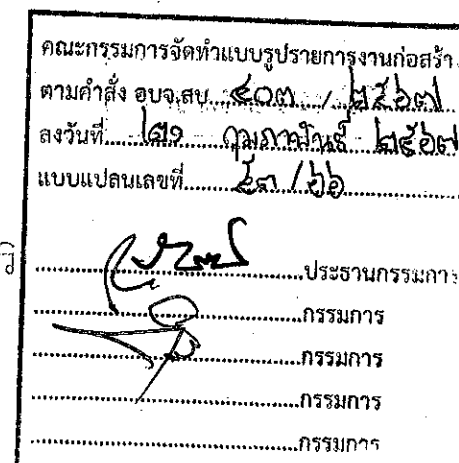 คณะกรรมการจัดทำแบบรูปรายการงานก่อสร้า
ตามคำสั่ง อบจ.สบ. ๔๐๓ / ๒๕๖๗
ลงวันที่ ๒๑ กุมภาพันธ์ ๒๕๖๗
แบบแปลนเลขที่ ๕๓ / ๖๖
ประธานกรรมการ
กรรมการ
กรรมการ
กรรมการ
กรรมการ